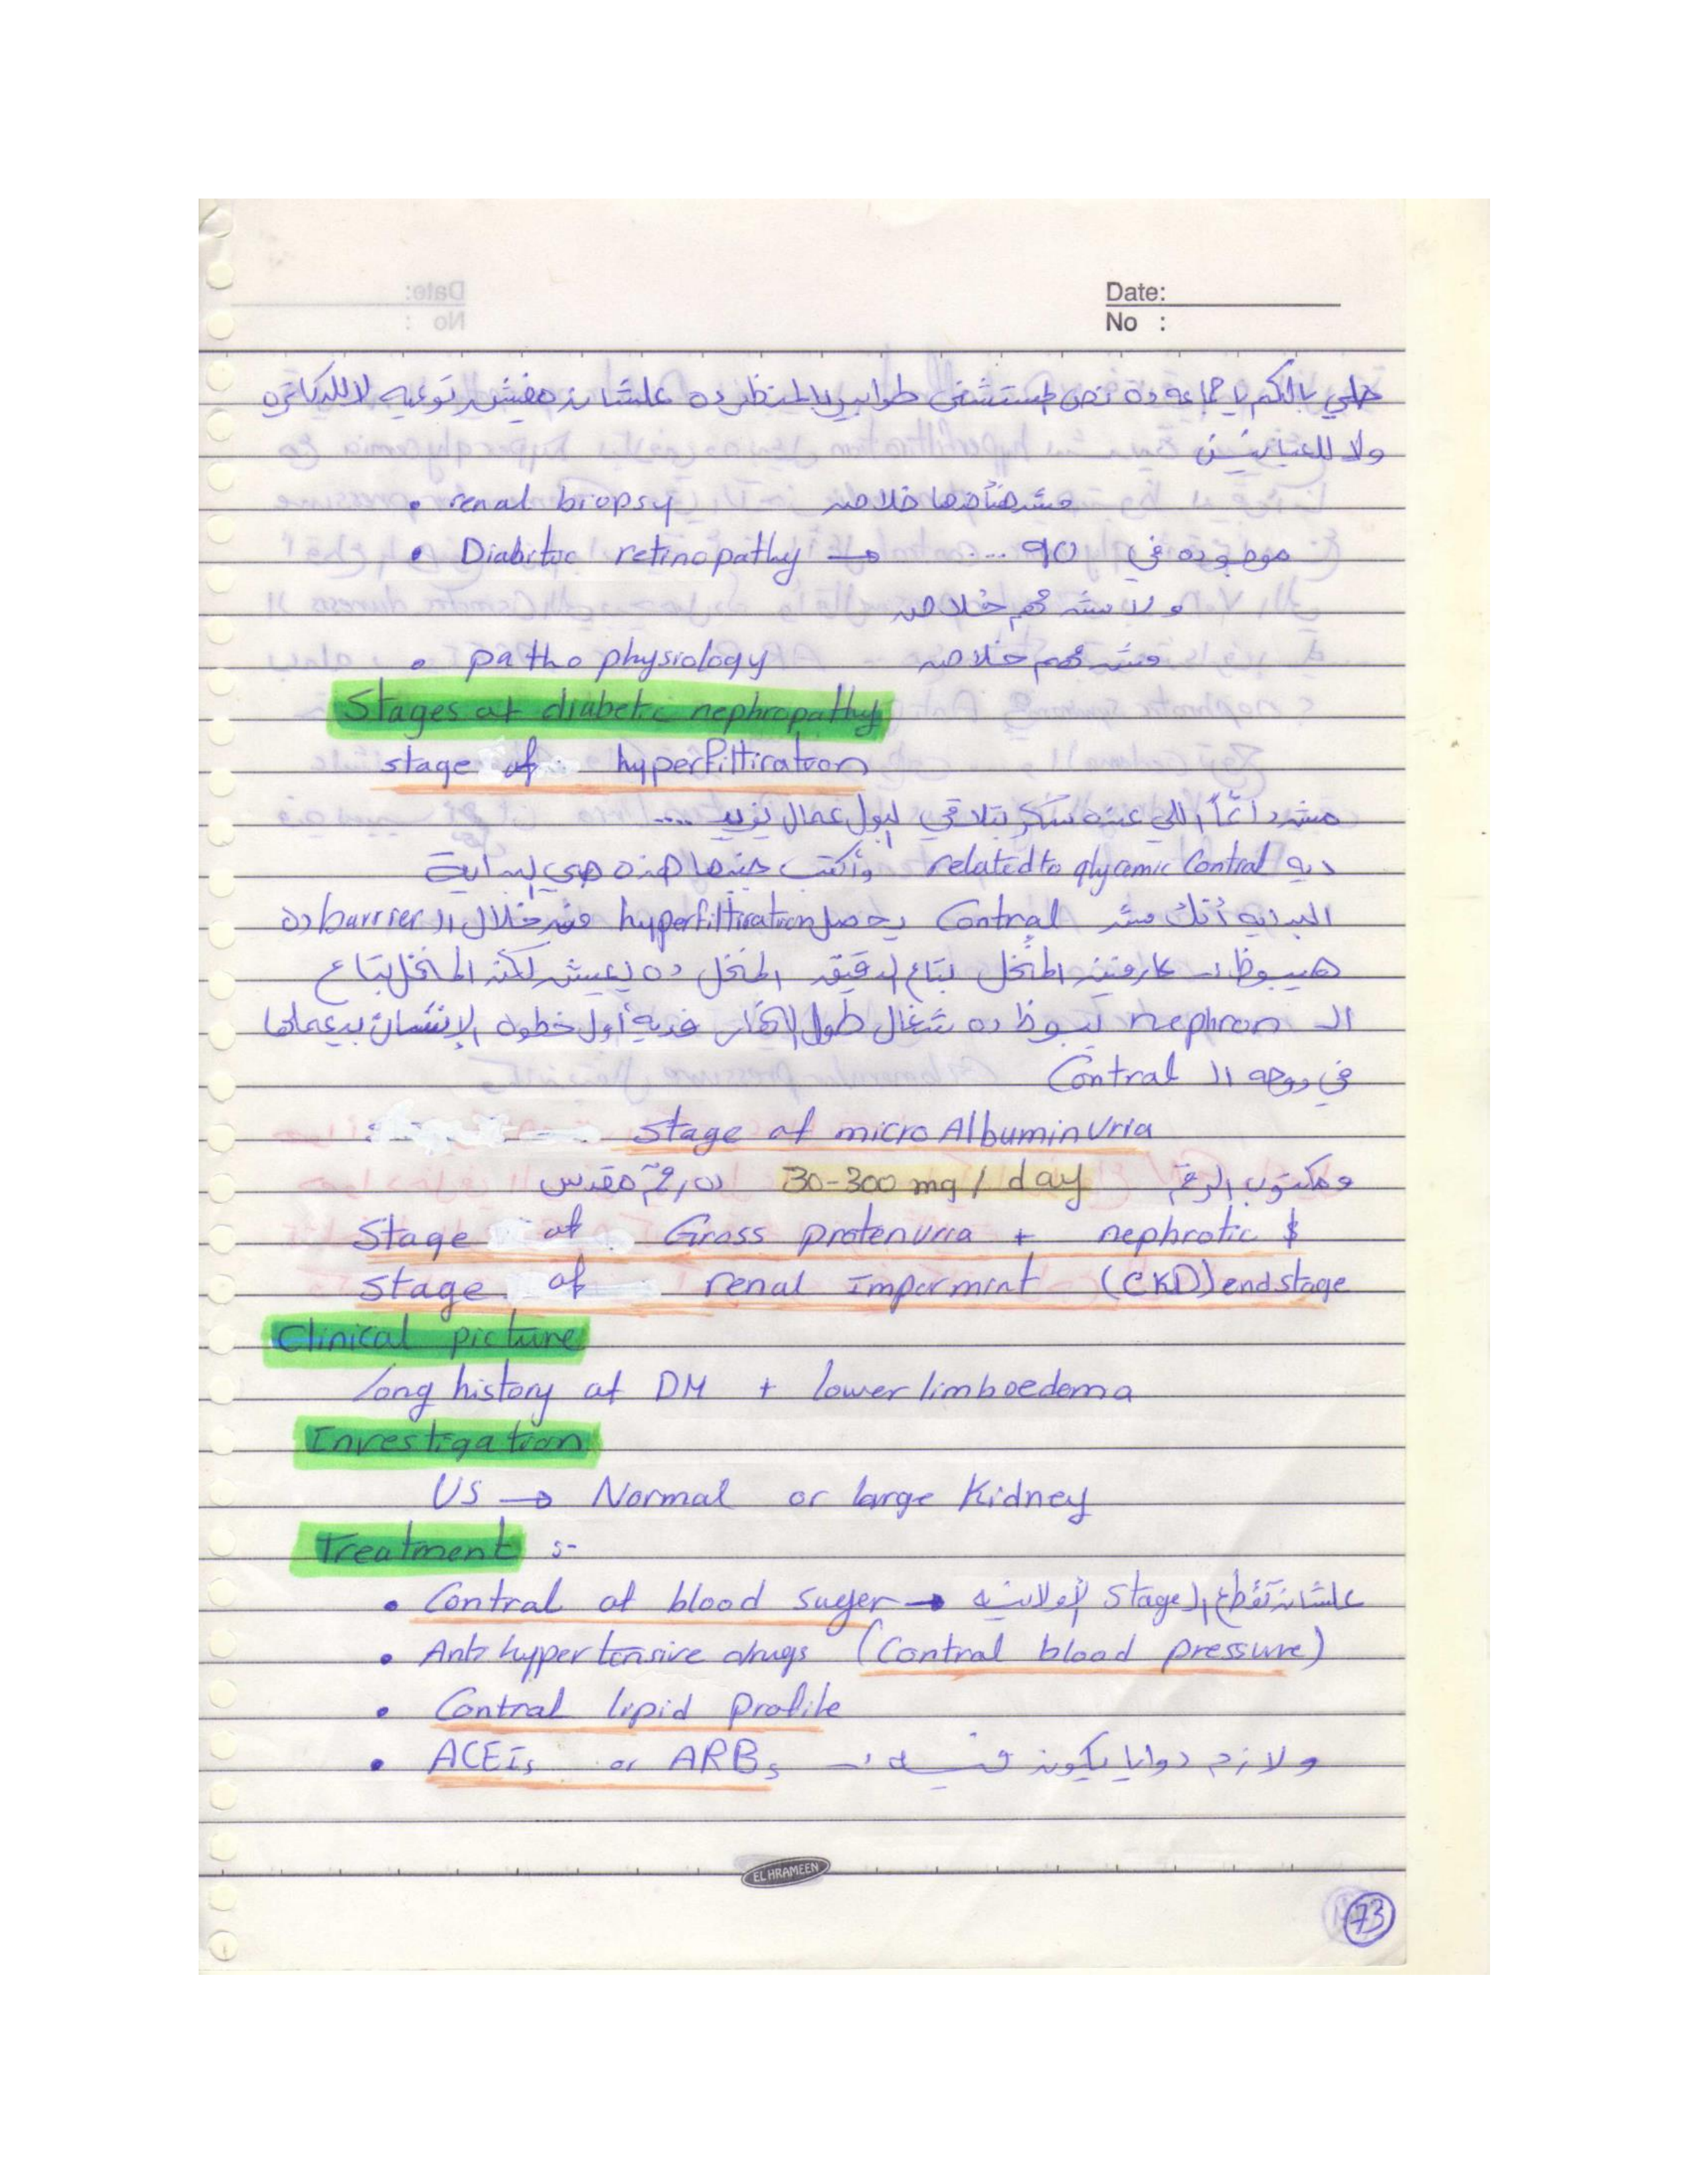 Date:
No :
خلي بالكم يا جماعه ده نص المستشفى طوابير بالمنظر ده علشان مفيش توعيه لا للدكاتره
ولا للعيانين
• renal biopsy مش هنأخدها خلاص
• Diabitic retinopathy → ... 90 موجوده في
ولا مش مهم خلاص
• patho physiology مش مهم خلاص
Stages of diabetic nephropathy
stage of hyperfiltiration
مش دائماً اللي عنده سكر بتلاقي البول عمال يزيد ....
ديه related to glycemic Control وأكتب جنبها هذه هي البداية
البدايه أنك مش Control يحصل hyperfiltiration من خلال ال barrier ده
هيبوظ عارفين المنخل بتاع الدقيق المنخل ده يعيش لكن المنخل بتاع
ال nephron يبوظ ده شغال طول النهار فديه أول خطوه الإنسان بيعملها
في ال Control
stage of micro Albuminuria
ومكتوب الرقم 30-300 mg / day ده رقم مقدس
Stage of Gross protenuria + nephrotic $
stage of renal Imparmint (CKD) endstage
Clinical picture
long history of DM + lower limb oedema
Investigation
US → Normal or large Kidney
Treatment :-
• Control of blood suger → علشان تقطع ال stage الأولانيه
• Anti hypertensive drugs (Control blood pressure)
• Control lipid profile
• ACEIs or ARBs → ولازم دوايا يكون فيه
EL HRAMEEN
73